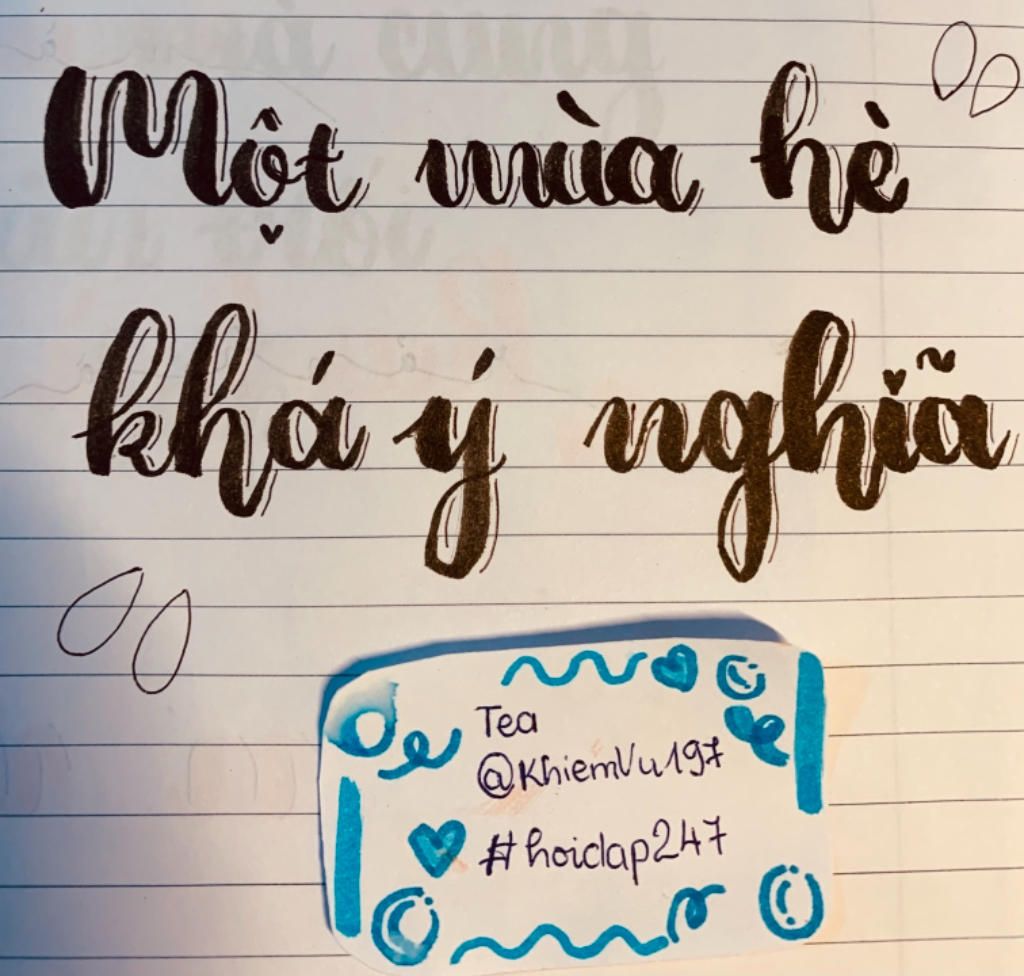 Một mùa hè
khá ý nghĩã
Tea
@KhiemVu197
#hoidap247